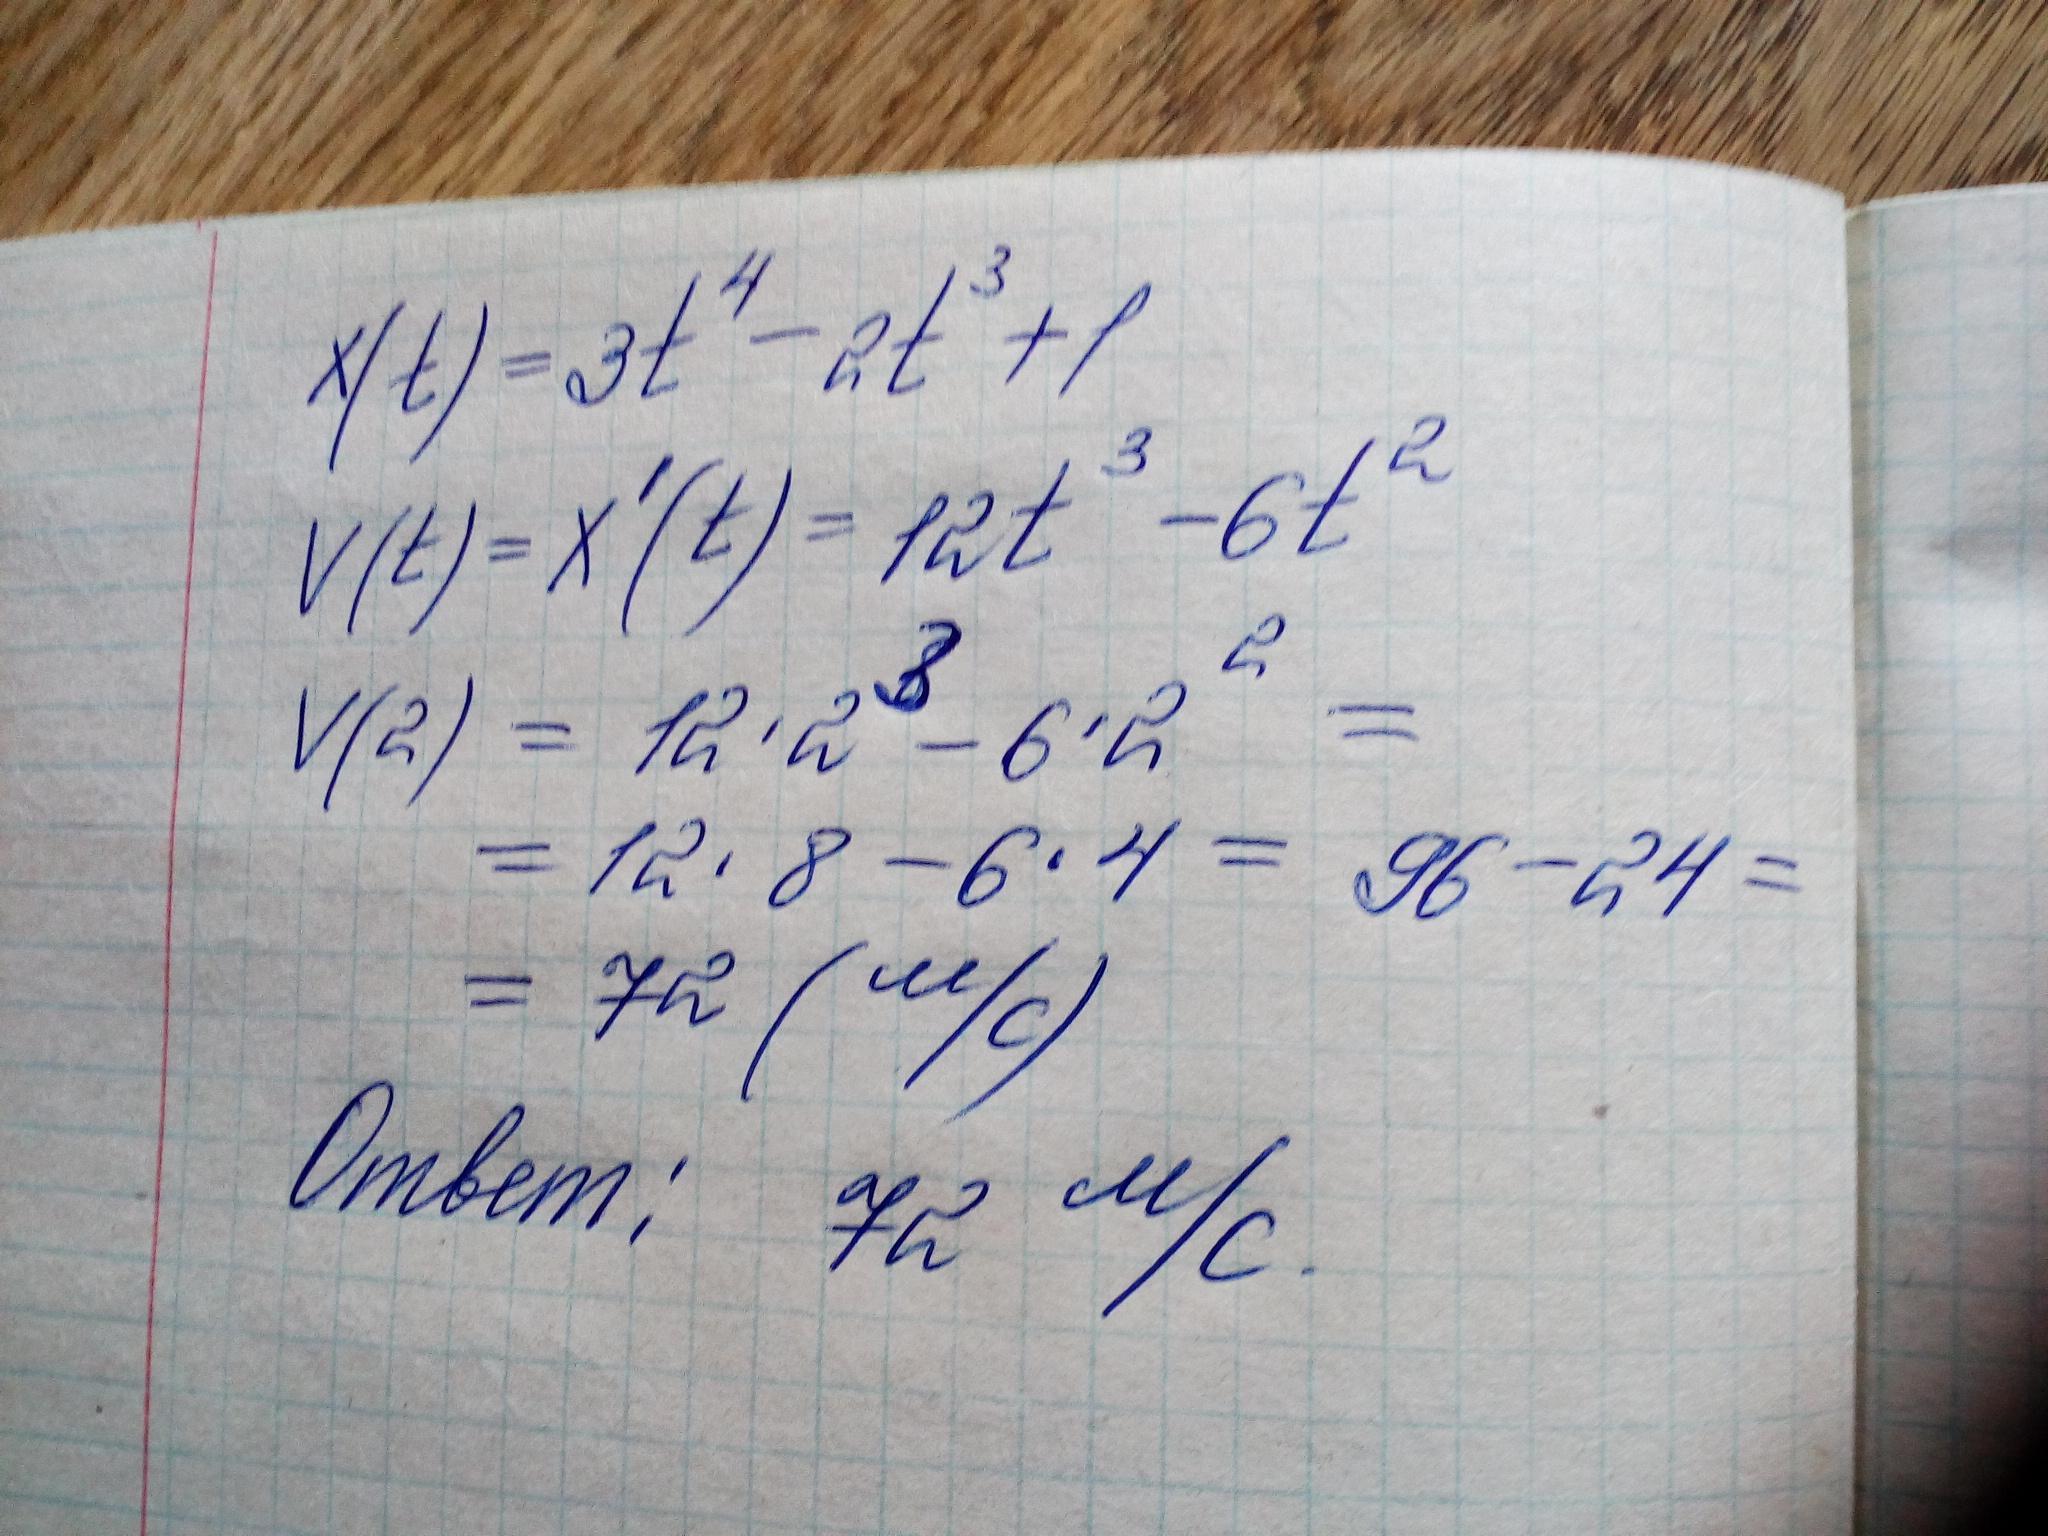 x(t) = 3t⁴ - 2t³ + 1
V(t) = x'(t) = 12t³ - 6t²
V(2) = 12·2³ - 6·2² =
= 12·8 - 6·4 = 96 - 24 =
= 72 (м/с)
Ответ: 72 м/с.